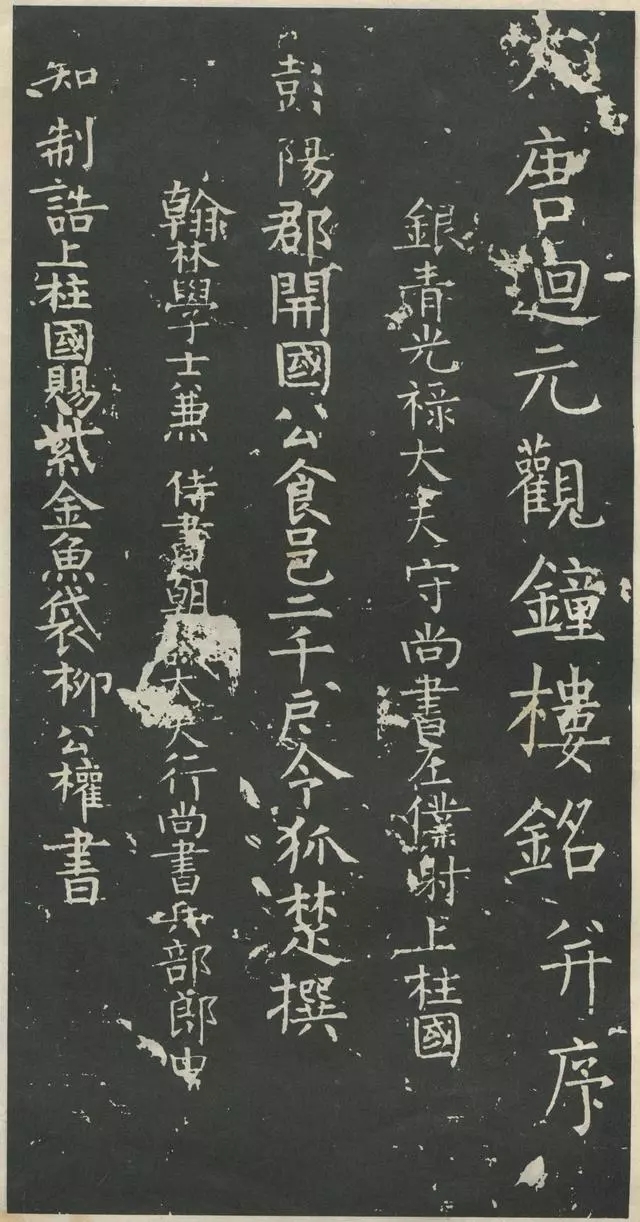 大唐迴元觀鐘樓銘并序
銀青光祿大夫守尚書左僕射上柱國
彭陽郡開國公食邑二千戶令狐楚撰
翰林學士兼侍書朝議大夫行尚書兵部郎中
知制誥上柱國賜紫金魚袋柳公權書